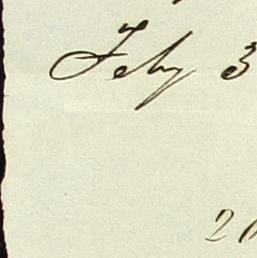 Feby 3
20